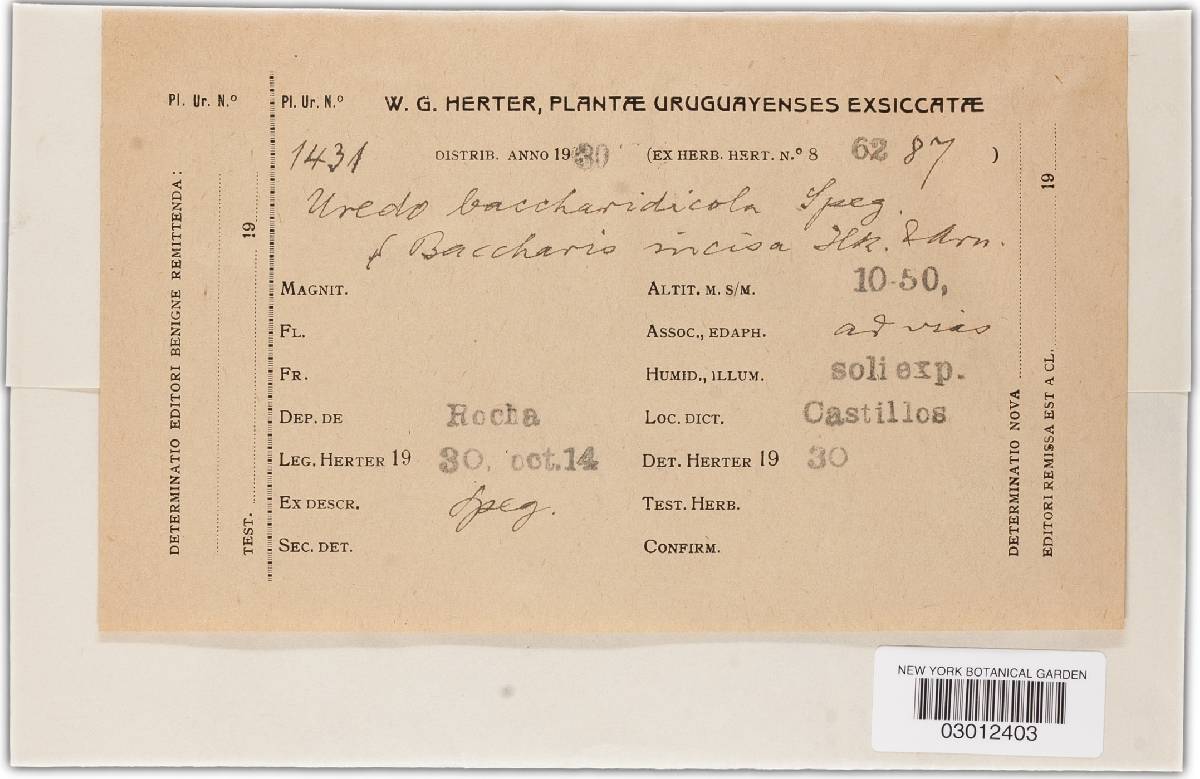 Pl. Ur. N.º
DETERMINATIO EDITORI BENIGNE REMITTENDA:
TEST. 19
Pl. Ur. N.º W. G. HERTER, PLANTÆ URUGUAYENSES EXSICCATÆ
1431 DISTRIB. ANNO 1930 (EX HERB. HERT. N.º 8 62 87 )
Uredo baccharidicola Speg.
f Baccharis incisa Hk. & Arn.
MAGNIT. ALTIT. M. S/M. 10-50,
FL. ASSOC., EDAPH. ad vias
FR. HUMID., ILLUM. soli exp.
DEP. DE Rocha LOC. DICT. Castillos
LEG. HERTER 19 30, oct.14 DET. HERTER 19 30
EX DESCR. Speg. TEST. HERB.
SEC. DET. CONFIRM.
DETERMINATIO NOVA
EDITORI REMISSA EST A CL. 19
NEW YORK BOTANICAL GARDEN
03012403